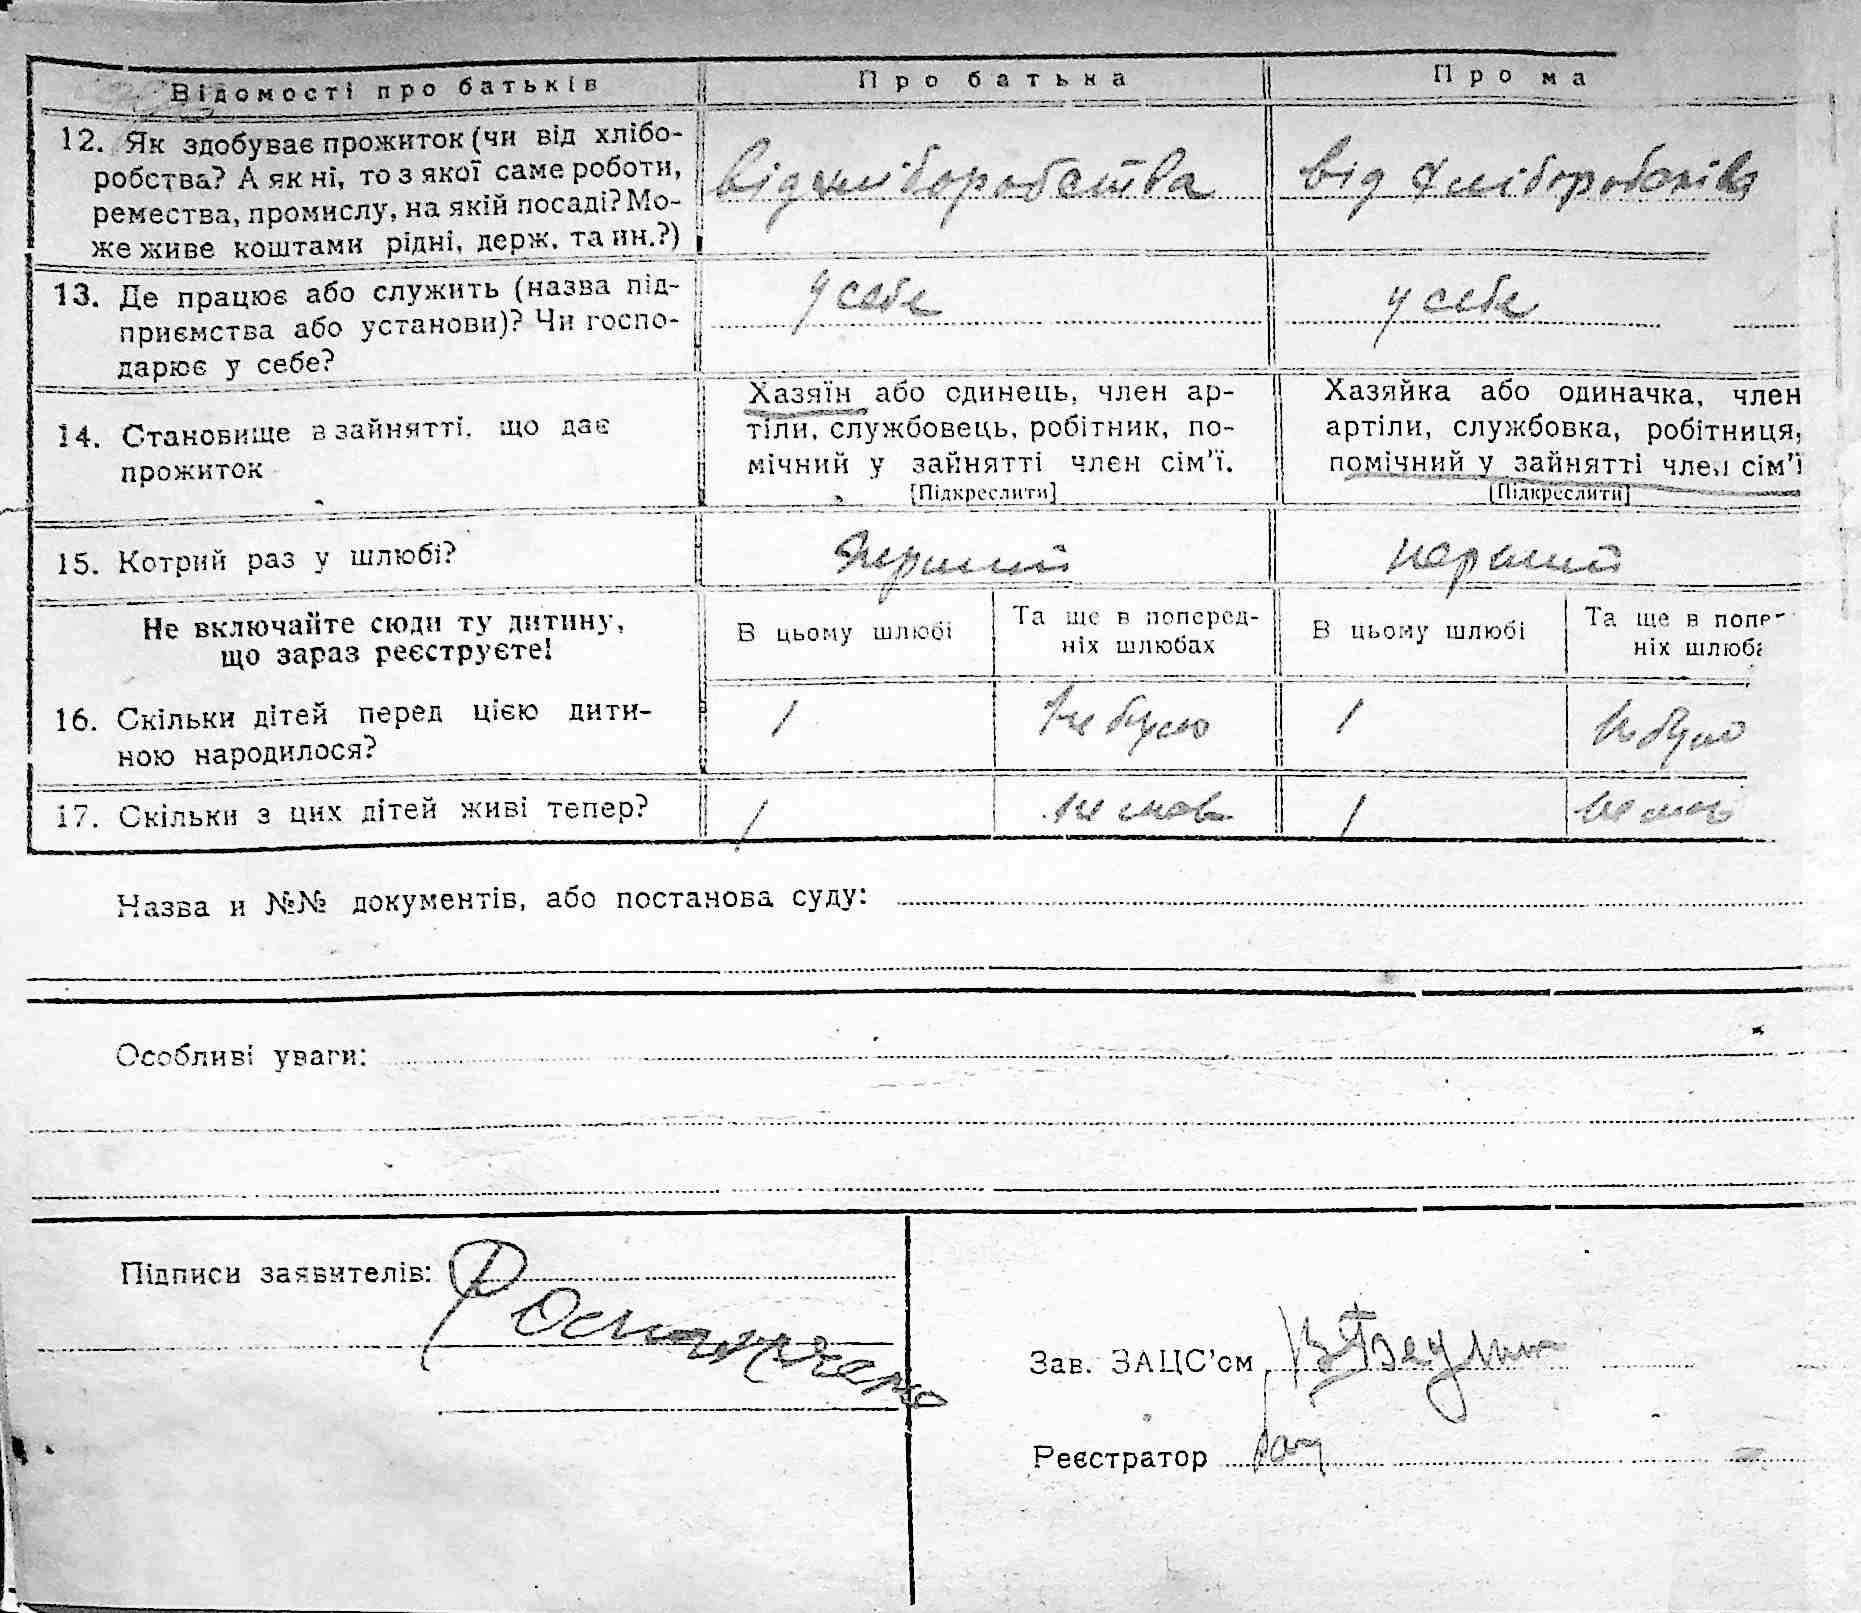 Відомості про батьків
Про батька
Про ма
12. Як здобуває прожиток (чи від хлібо-
робства? А як ні, то з якої саме роботи,
ремества, промислу, на якій посаді? Мо-
же живе коштами рідні, держ. та ин.?)
від хліборобства
від хліборобства
13. Де працює або служить (назва під-
приємства або установи)? Чи госпо-
дарює у себе?
у себе
у себе
14. Становище в зайнятті, що дає
прожиток
Хазяїн або одинець, член ар-
тіли, службовець, робітник, по-
мічний у зайнятті член сім'ї.
[Підкреслити]
Хазяйка або одиначка, член
артіли, службовка, робітниця,
помічний у зайнятті член сім'ї
[Підкреслити]
15. Котрий раз у шлюбі?
перший
перший
Не включайте сюди ту дитину,
що зараз реєструєте!
В цьому шлюбі
Та ще в поперед-
ніх шлюбах
В цьому шлюбі
Та ще в попер-
ніх шлюба
16. Скільки дітей перед цією дити-
ною народилося?
1
не було
1
не було
17. Скільки з цих дітей живі тепер?
1
немає
1
немає
Назва и №№ документів, або постанова суду:
Особливі уваги:
Підписи заявителів:
Зав. ЗАЦС'ом
Реєстратор